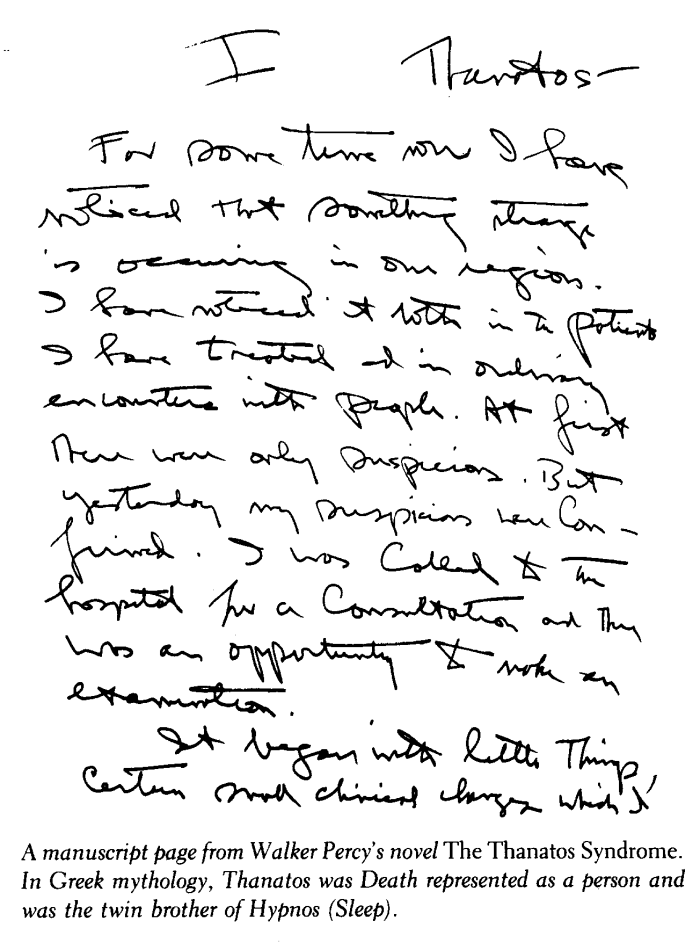 I Thanatos—
For some time now I have
noticed that something strange
is occurring in our region.
I have noticed it both in the patients
I have treated and in ordinary
encounters with people. At first
there were only suspicions. But
yesterday my suspicions were con-
firmed. I was called to the
hospital for a consultation and there
was an opportunity to make an
examination.
It began with little things,
certain small clinical changes which I
A manuscript page from Walker Percy's novel The Thanatos Syndrome.
In Greek mythology, Thanatos was Death represented as a person and
was the twin brother of Hypnos (Sleep).